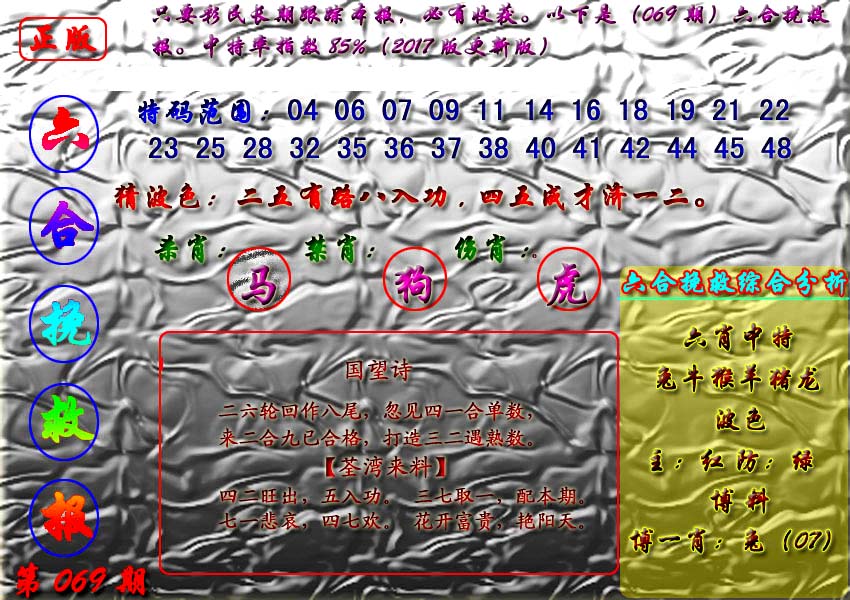 正版
只要彩民长期跟踪本报，必有收获。以下是（069期）六合挽救
报。中特率指数85%（2017版更新版）
六合挽救报
第069期
特码范围：04 06 07 09 11 14 16 18 19 21 22
23 25 28 32 35 36 37 38 40 41 42 44 45 48
猜波色：二五有路八入功，四五成才济一二。
杀肖：马 禁肖：狗 伤肖：虎。
国望诗
二六轮回作八尾，忽见四一合单数，
来二合九已合格，打造三二遇熟数。
【荃湾来料】
四二旺出，五入功。 三七取一，配本期。
七一悲哀，四七欢。 花开富贵，艳阳天。
六合挽救综合分析
六肖中特
兔牛猴羊猪龙
波色
主：红 防：绿
博料
博一肖：兔（07）